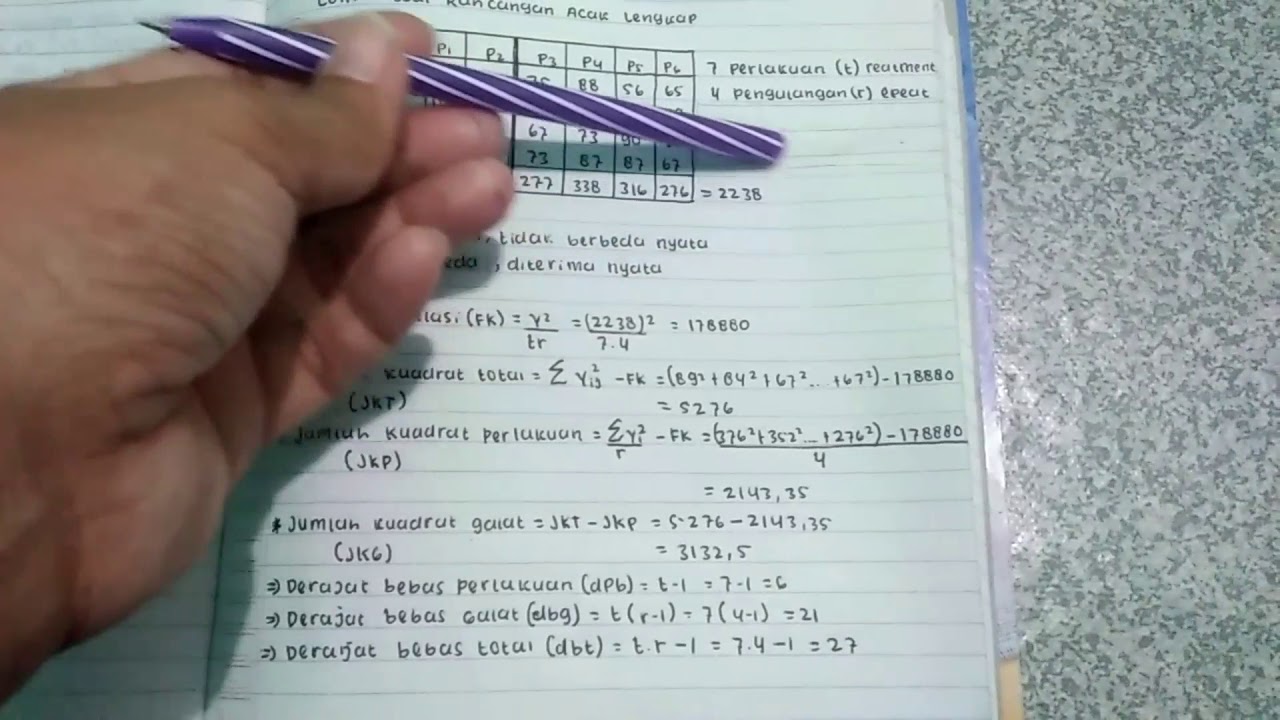 Rancangan Acak Lengkap
P1 P2 P3 P4 P5 P6 7 perlakuan (t) reatment
88 56 65 4 pengulangan (r) epeat
67 73 90
73 87 87 67
277 338 316 276 = 2238
, tidak berbeda nyata
, diterima nyata
(FK) = Y² / tr = (2238)² / 7.4 = 178880
kuadrat total = Σ Yij² - FK = (89² + 84² + 67² ... + 67²) - 178880
(JKT) = 5276
Jumlah kuadrat perlakuan = Σ Yi² / r - FK = (376² + 352² ... + 276²) - 178880 / 4
(JKP)
= 2143,35
* Jumlah kuadrat galat = JKT - JKP = 5.276 - 2143,35
(JKG) = 3132,5
⇒ Derajat bebas perlakuan (dPb) = t-1 = 7-1 = 6
⇒ Derajat bebas Galat (dbg) = t(r-1) = 7(4-1) = 21
⇒ Derarjat bebas total (dbt) = t.r - 1 = 7.4 - 1 = 27